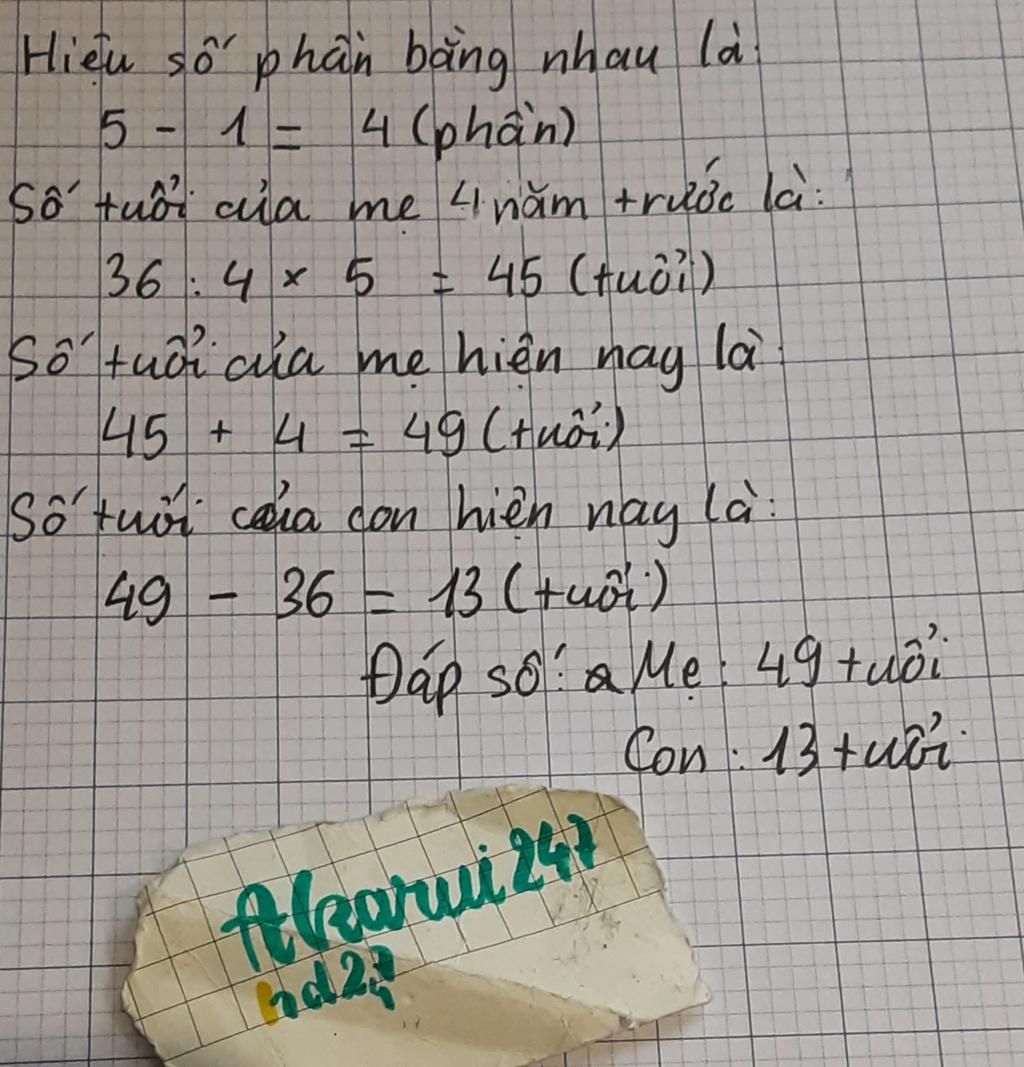 Hiệu số phần bằng nhau là:
5 - 1 = 4 (phần)
Số tuổi của mẹ 4 năm trước là:
36 : 4 x 5 = 45 (tuổi)
Số tuổi của mẹ hiện nay là:
45 + 4 = 49 (tuổi)
Số tuổi của con hiện nay là:
49 - 36 = 13 (tuổi)
Đáp số: Mẹ: 49 tuổi
Con: 13 tuổi